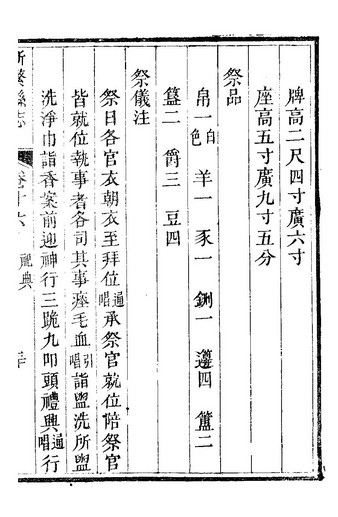 牌高二尺四寸廣六寸
座高五寸廣九寸五分
祭品
帛一白色 羊一 豕一 鉶一 籩四 簠二
簋二 爵三 豆四
祭儀注
祭日各官衣朝衣至拜位通唱承祭官就位陪祭官
皆就位執事者各司其事瘞毛血引唱詣盥洗所盥
洗淨巾詣香案前迎神行三跪九叩頭禮興通唱行
新繁縣志 卷十六 祀典